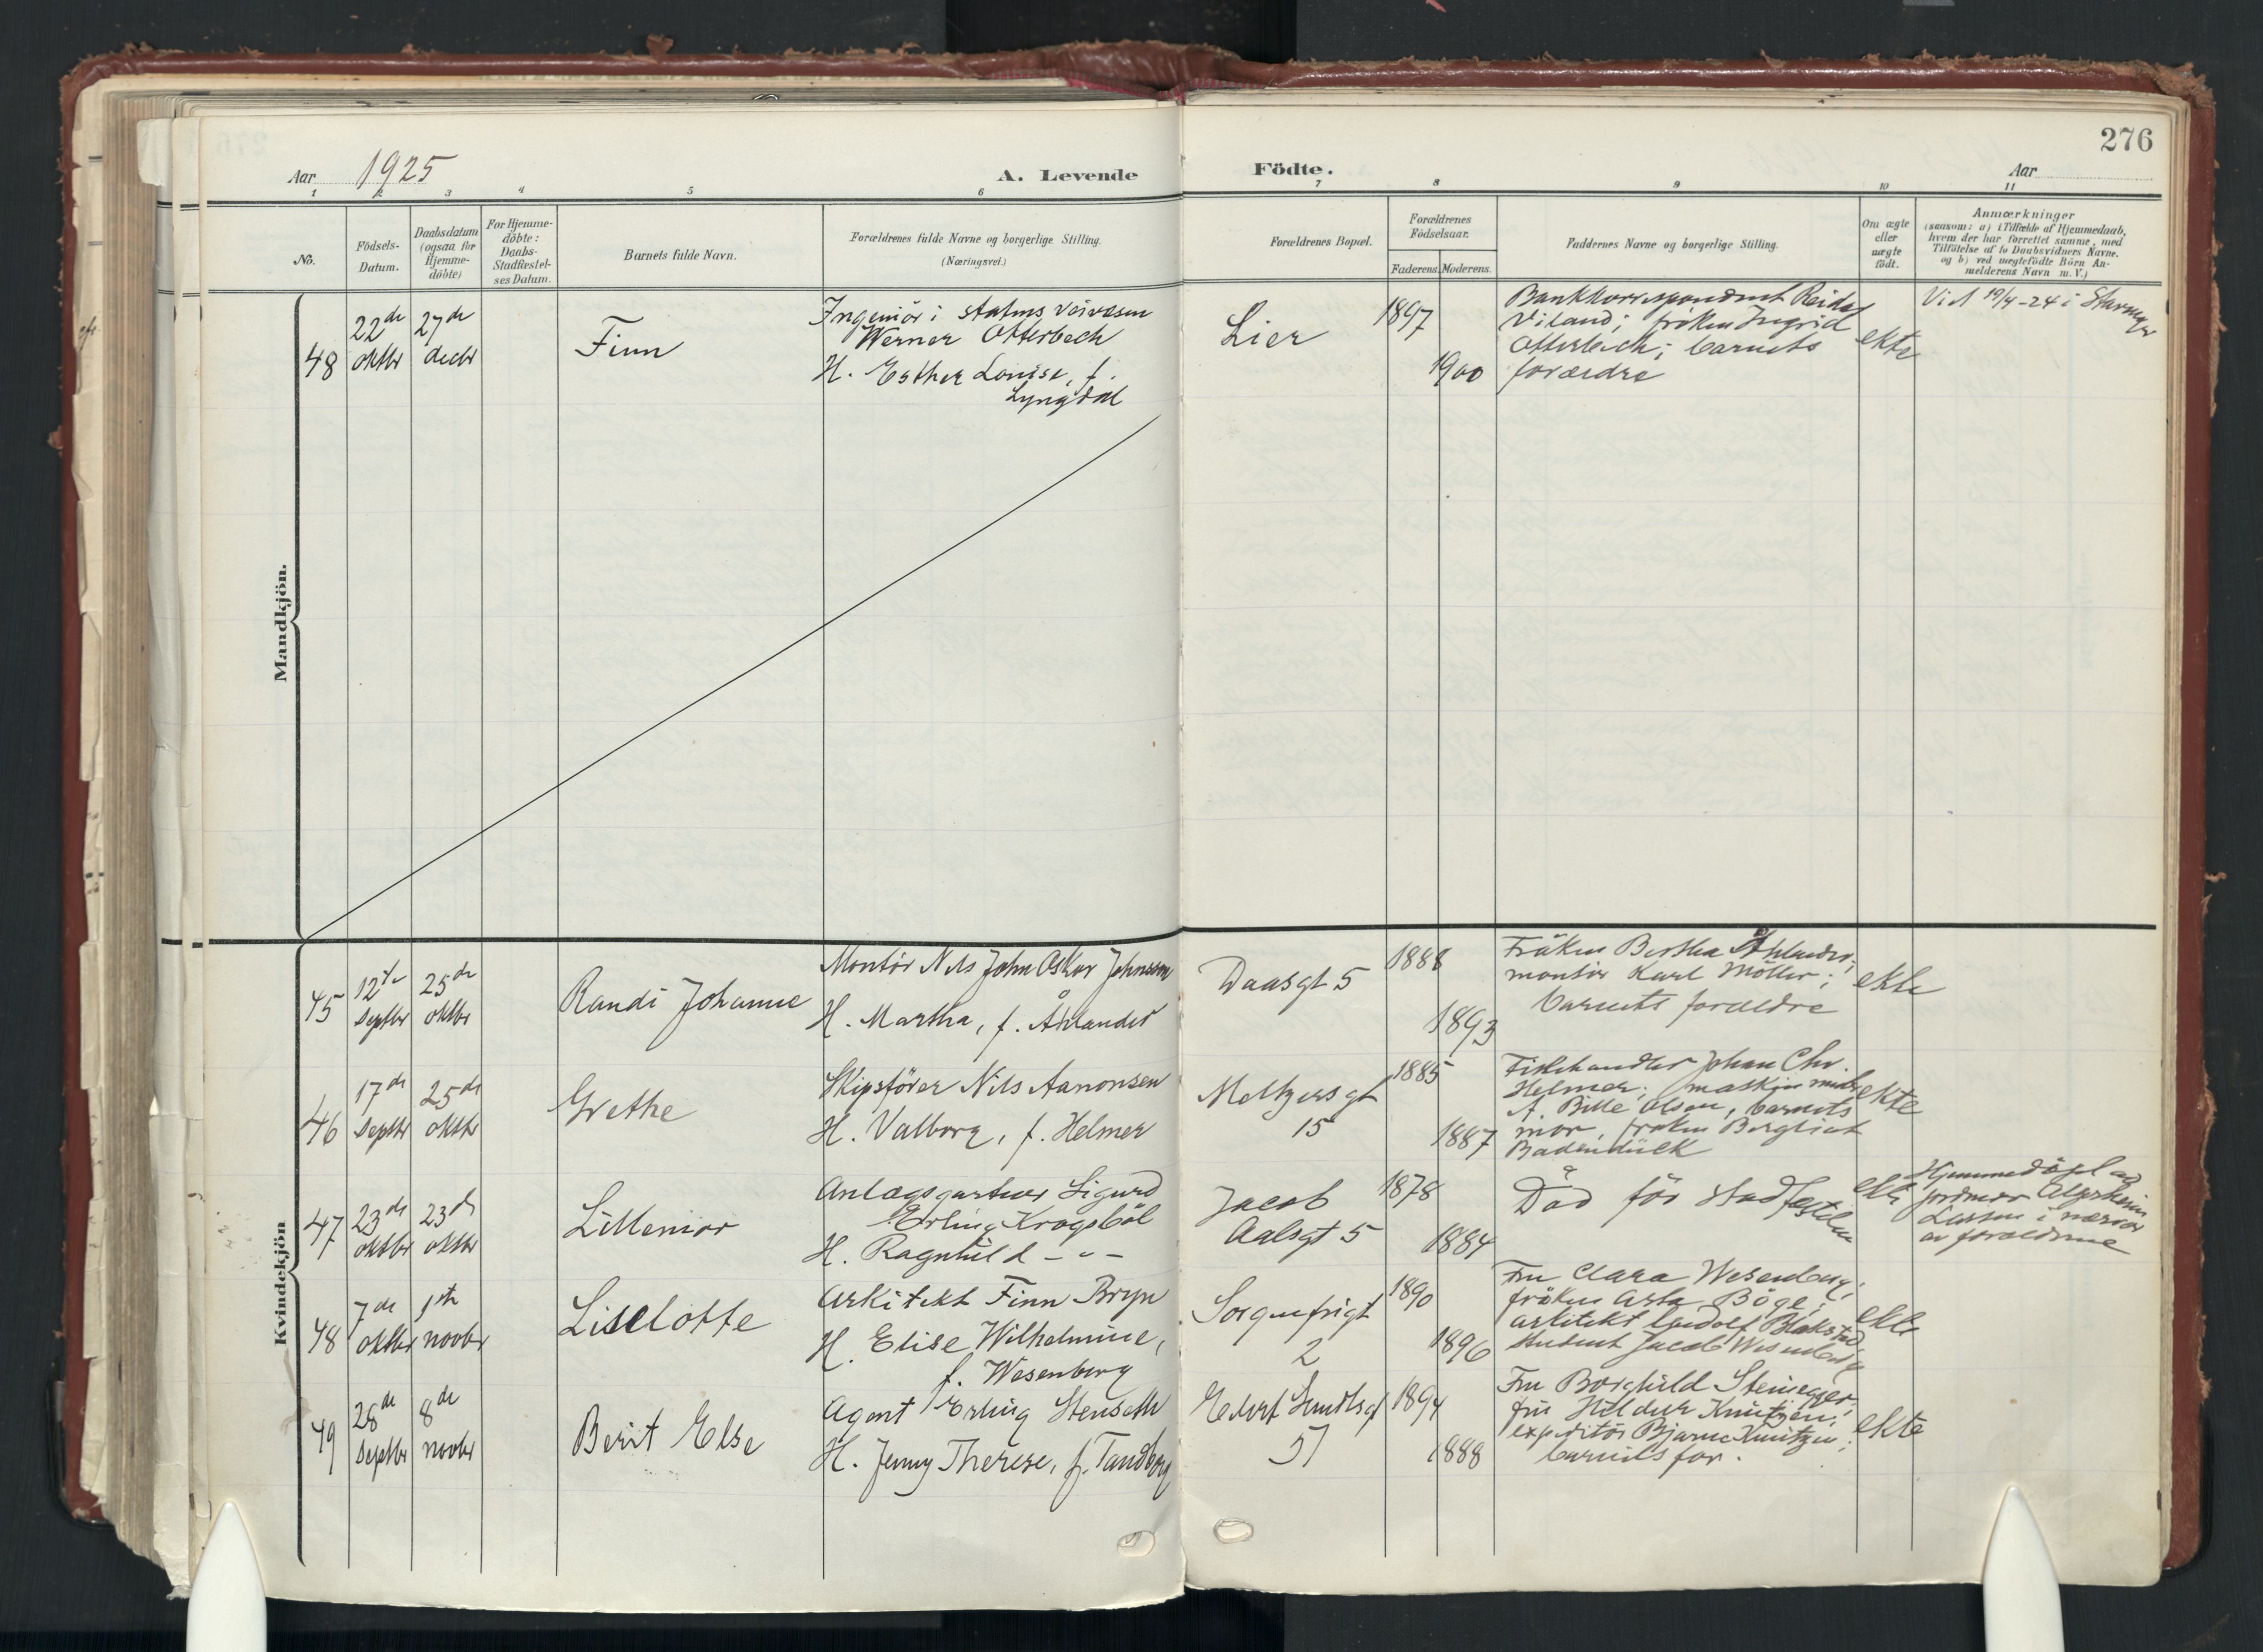 276
Aar 1925
A. Levende
Födte.
Aar
1 2 3 4 5 6 7 8 9 10 11
No.
Födsels-
Datum.
Daabsdatum
(ogsaa for
Hjemme-
döbte)
For Hjemme-
döbte:
Daabs-
Stadfestel-
ses Datum.
Barnets fulde Navn.
Forældrenes fulde Navne og borgerlige Stilling.
(Næringsvei.)
Forældrenes Bopæl.
Forældrenes
Födselsaar.
Faderens. Moderens.
Faddernes Navne og borgerlige Stilling.
Om ægte
eller
uægte
födt.
Anmærkninger
(saasom: a) i Tilfælde af Hjemmedaab,
hvem der har forrettet samme, med
Tilföielse af to Daabsvidners Navne.
og b) ved uægtefödte Börn An-
melderens Navn m. V.)
Mandkjön.
48
22de
oktbr
27de
decbr
Finn
Ingeniör i statens veivesen
Werner Otterbech
H. Esther Louise, f.
Lyngdal
Lier
1897
1900
Bankkorrespondent Reidar
Viland; fröken Ingrid
Otterbech; barnets
forældre
ekte
Viet 19/4-24 i Stavanger
Kvindekjön
45
12te
Septbr
25de
oktbr
Randi Johanne
Montör Nils John Oskar Johnsson
H. Martha, f. Åhlander
Daasgt 5
1888
1893
Fröken Bertha Åhlander;
montör Karl Möller;
barnets forældre
ekte
46
17de
Septbr
25de
oktbr
Grethe
Skipsförer Nils Aanonsen
H. Valborg, f. Helmer
Meltzersgt
15
1885
1887
Fiskehandler Johan Chr.
Helmer; maskin
A. Bille Olsen, barnets
mor, fröken Bergliot
Badendück
ekte
47
23de
oktbr
23de
oktbr
Lillemor
Anlægsgartner Sigurd
Erling Krogsböl
H. Ragnhild - " -
Jacob
Aalsgt 5
1878
1884
Död för stadfestelsen
ekte
Hjemmedöpt av
jordmor
Larsen i nærvær
av forældrene
48
7de
oktbr
1ste
novbr
Liselotte
Arkitekt Finn Bryn
H. Elise Wilhelmine,
f. Wesenberg
Sorgenfrigt
2
1890
1896
Fru Clara Wesenberg;
fröken Asta Böge;
arkitekt Gudolf Blakstad,
student Jacob Wesenberg
ekte
49
28de
Septbr
8de
novbr
Berit Else
Agent Erling Stenseth
H. Jenny Therese, f. Tandberg
Eilert Sundtsgt
51
1894
1888
Fru Borghild Steinegger;
fru Hildur Knutzen;
expeditör Bjarne Knutzen;
barnets far.
ekte